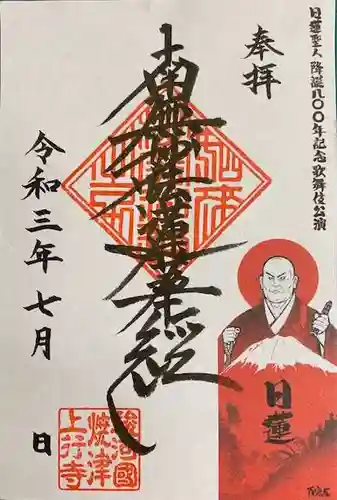 日蓮聖人降誕八〇〇年記念歌舞伎公演
奉拝
南無妙法蓮華経
令和三年七月 日
日蓮
駿河國
焼津
上行寺